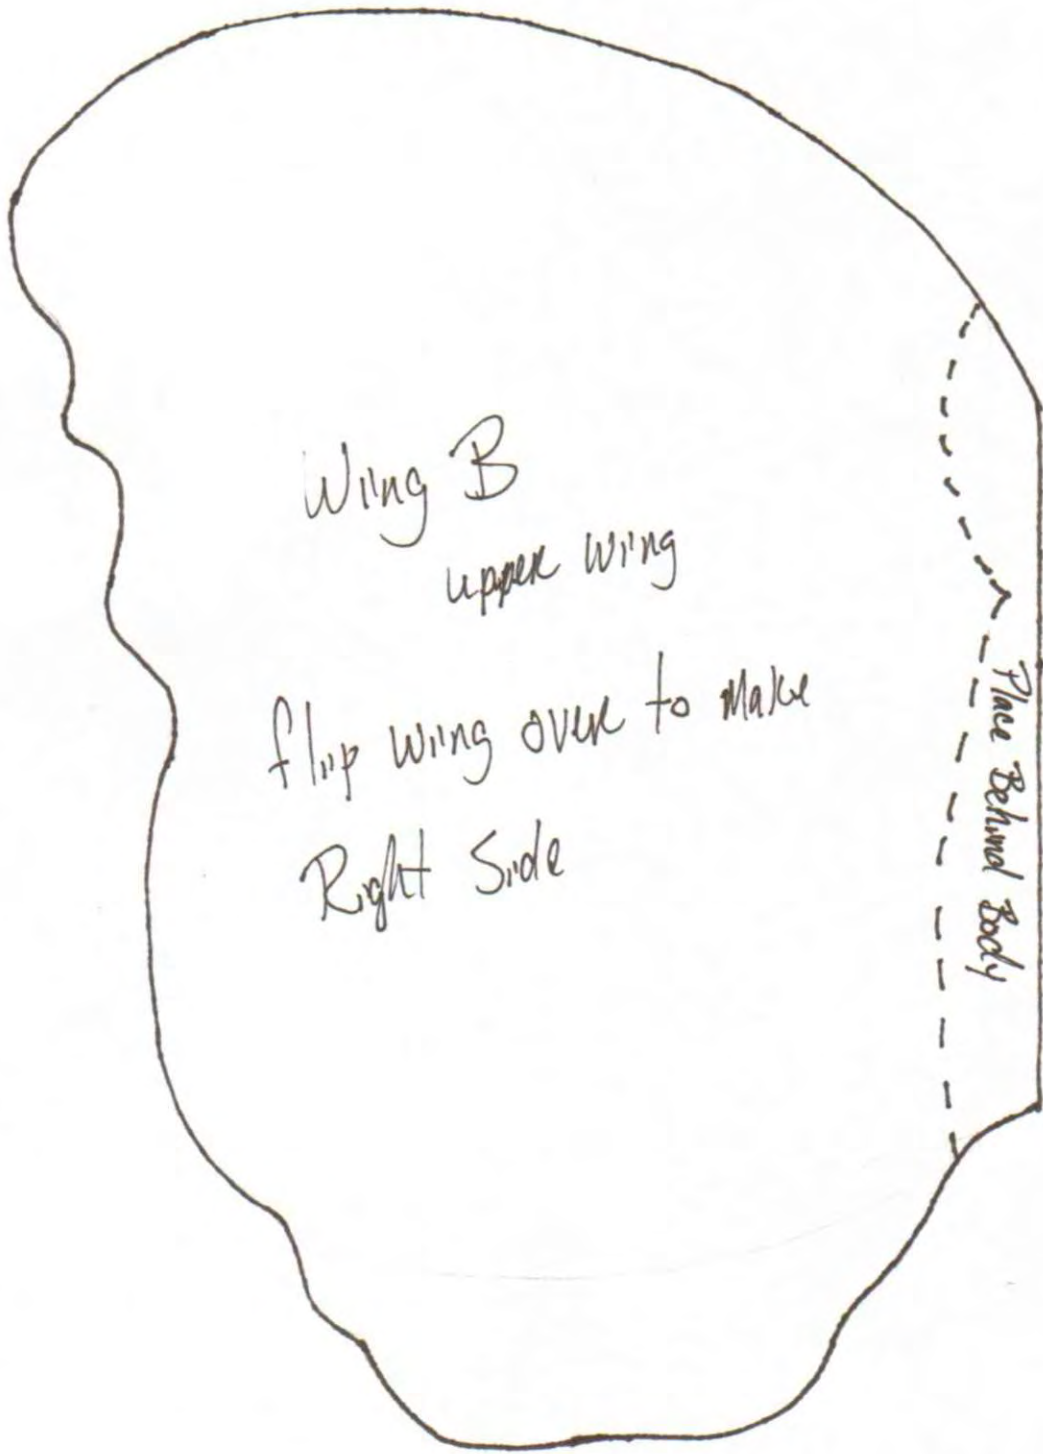 Wing B
upper wing
flip wing over to make
Right Side
Place Behind Body